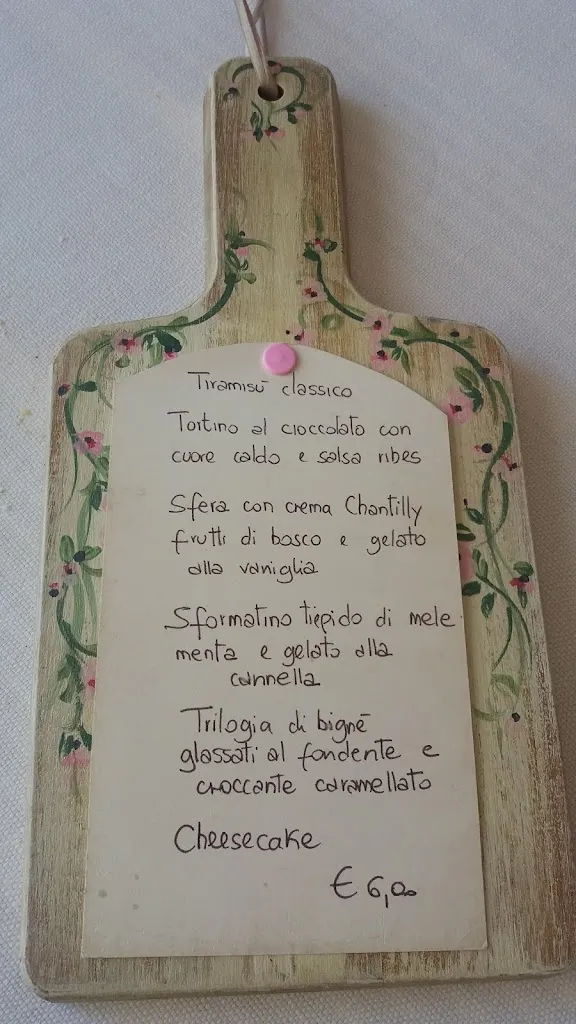 Tiramisù classico
Tortino al cioccolato con
cuore caldo e salsa ribes
Sfera con crema Chantilly
frutti di bosco e gelato
alla vaniglia
Sformatino tiepido di mele
menta e gelato alla
cannella
Trilogia di bignè
glassati al fondente e
croccante caramellato
Cheesecake
€ 6,00